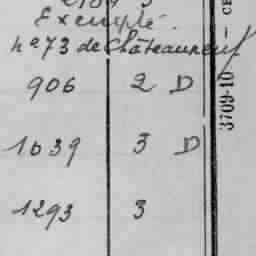 Exemple
nº 73 de Châteauneuf
906 2 D
1039 3 D
1293 3
3709-10 — CE